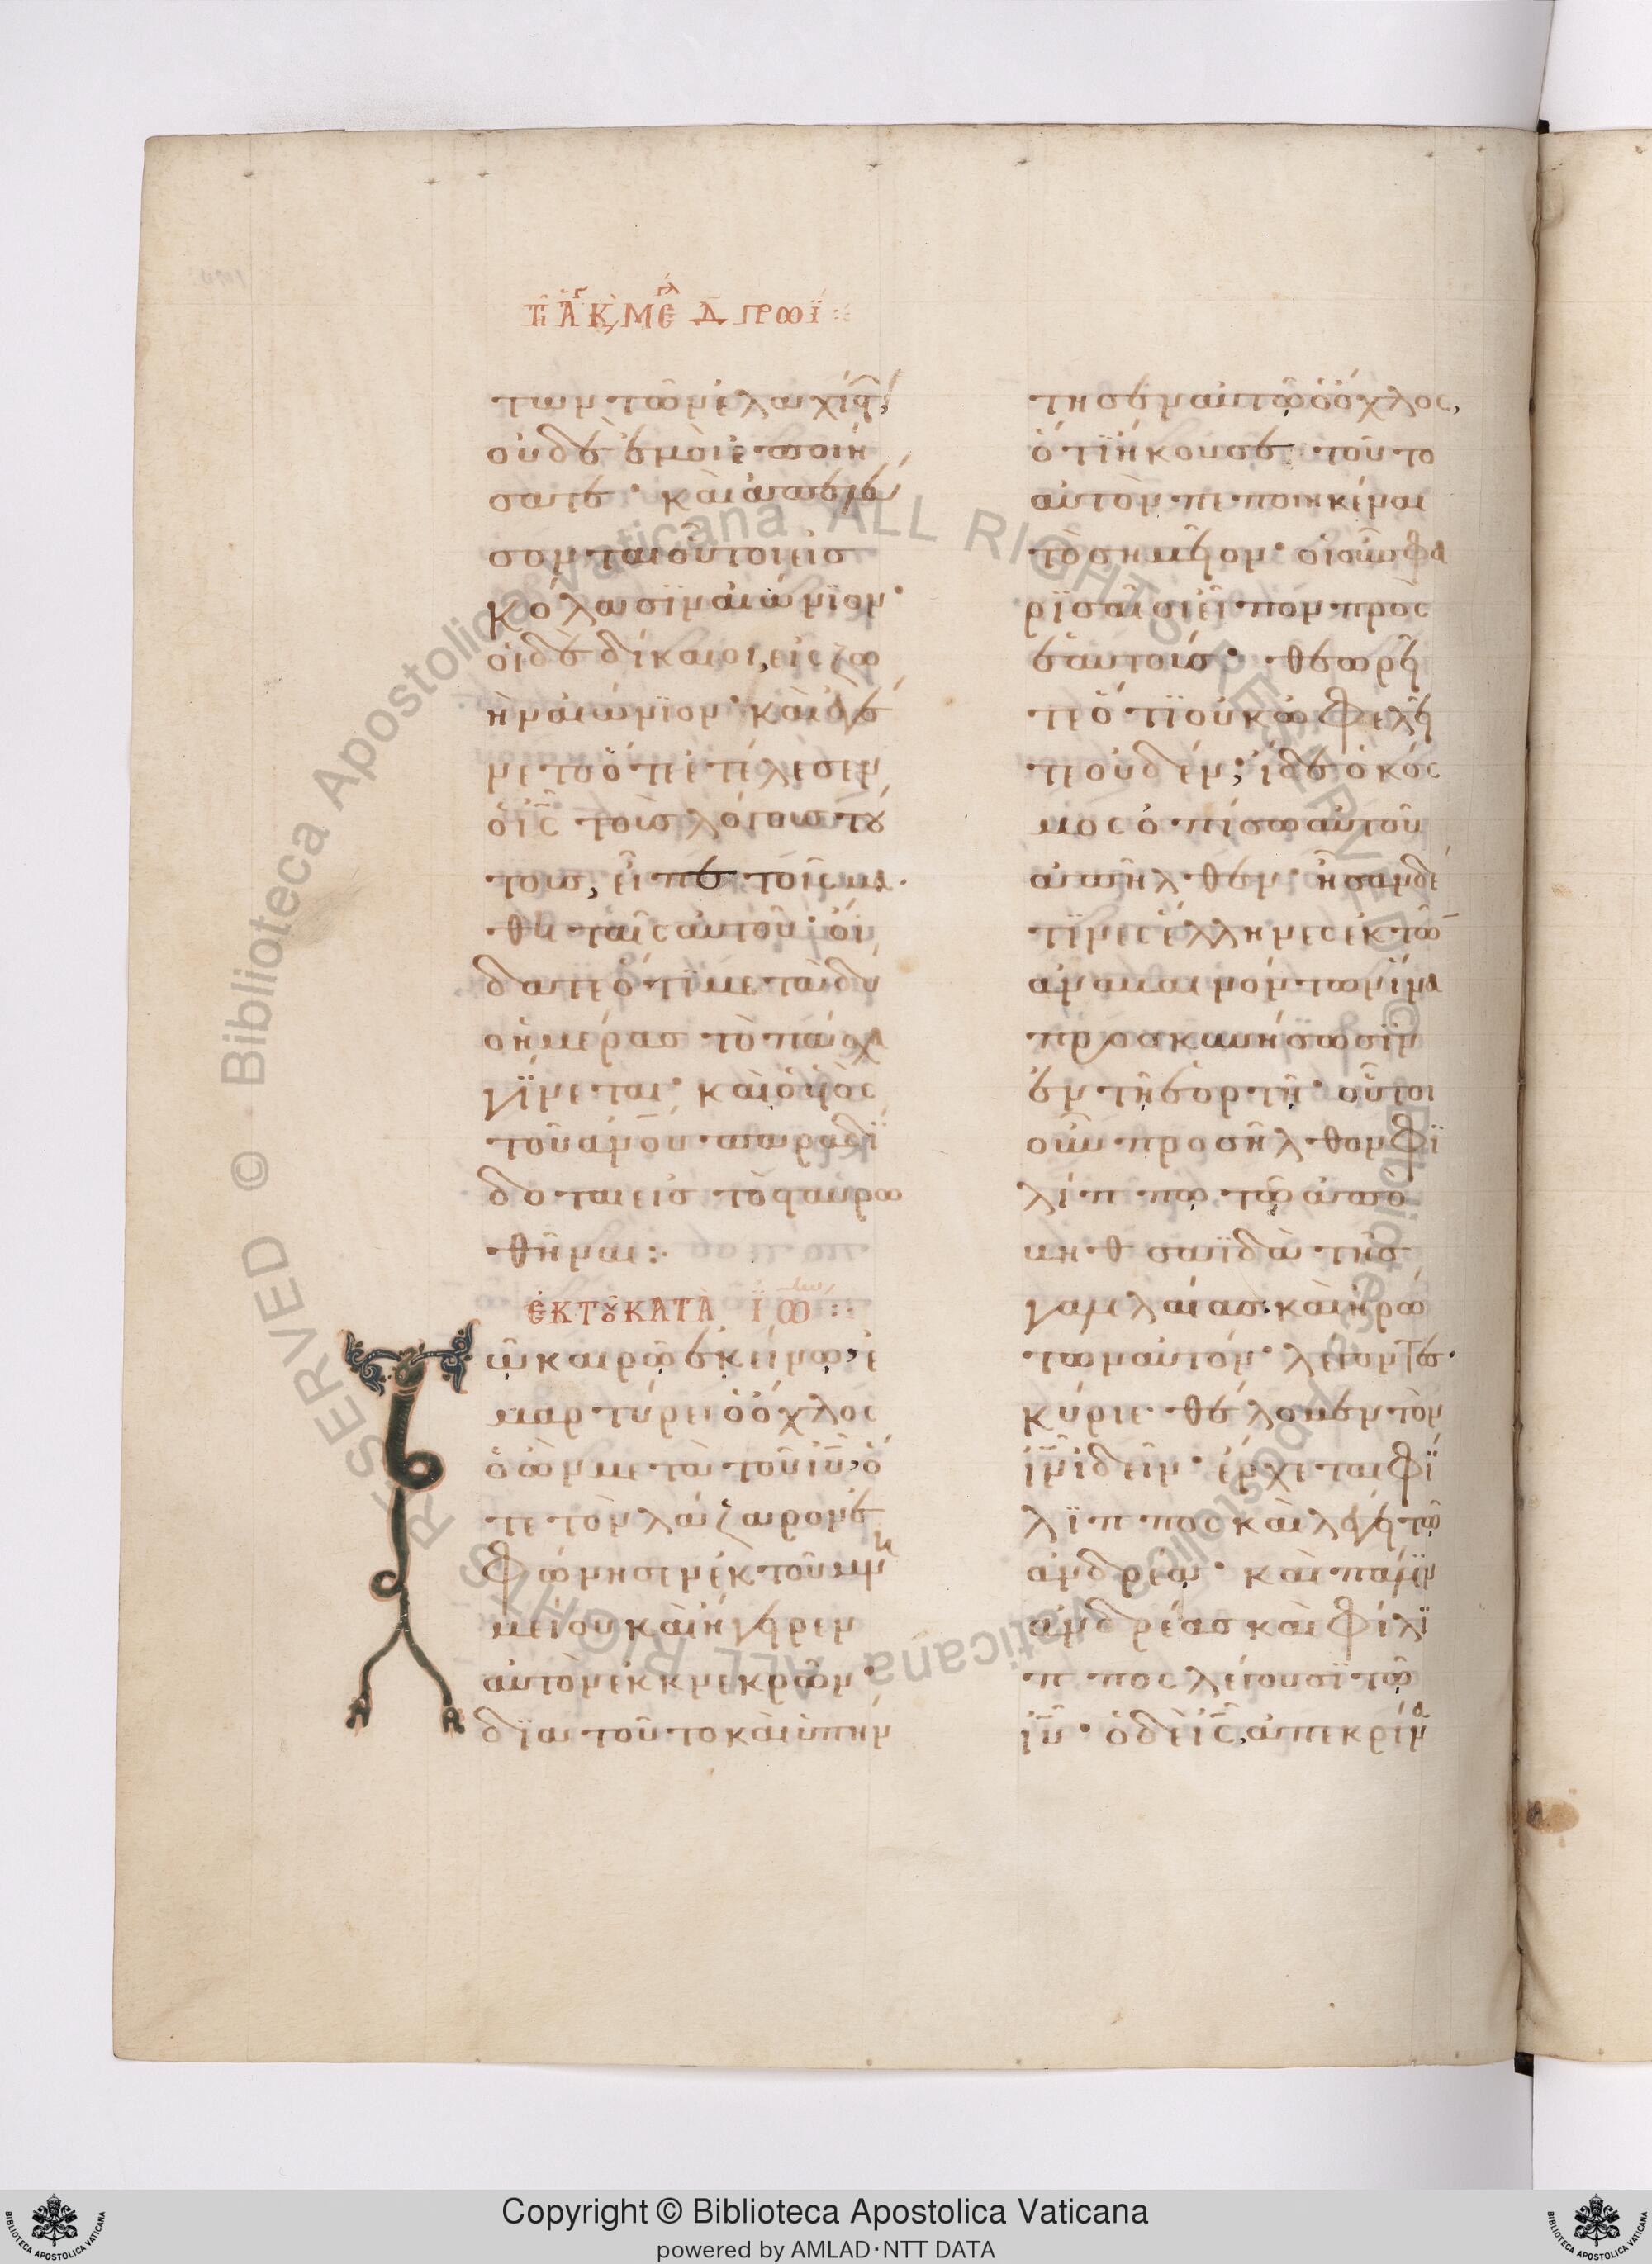 τῆ ἁγ κ, μεγλ δ πρωῒ :
των τῶν ἐλαχίστ,
οὐδὲ ἐμοὶ ἐποιή
σατε · καὶ ἀπελεύ
σονται οὗτοι εἰσ
κόλασϊν αἰώνϊον ·
οἱ δὲ δίκαιοι, εἰς ζω
ὴν αἰώνϊον · καὶ ἐγέ
νετο ὅτε ἐτέλεσεν
ὁ ις τοὺσ λόγουσ τού
τουσ, εἶπε τοῖς μα
θηταῖς αὐτοῦ · οἴ
δατε ὅτϊ μετὰ δύ
ο ἡμέρασ τὸ πάσχα
γίνεται · καὶ ὁ υἱὸς
τοῦ ανου παραδί
δοται εἰσ τὸ σταυρω
θῆναι :
ἐκ τοῦ κατὰ ϊω :
Τῶ καιρῶ ἐκείνω, ἐ
μαρτύρει ὁ ὄχλος
ὁ ὢν μετὰ τοῦ ιυ, ὅ
τε τὸν λάζαρον ἐ
φώνησεν ἐκ τοῦ μνη
μείου καὶ ἤγειρεν
αὐτὸν ἐκ νεκρῶν ·
δϊὰ τοῦτο καὶ ὑπήν
τησεν αὐτῶ ὁ ὄχλος,
ὅτϊ ἤκουσε τοῦτο
αὐτὸν πεποιηκέναι
τὸ σημεῖον · οἱ οὖν φα
ρϊσαῖοι εἶπον πρὸς
ἑαυτούσ · θεωρεῖ
τε ὅτϊ οὐκ ὠφελεῖ
τε οὐδέν; ἴδε ὁ κόσ
μος ὀπίσω αὐτοῦ
ἀπῆλθεν · ἦσαν δέ
τϊνες ἕλληνες ἐκ τῶ
ἀναβαινόντων ἵνα
προσκυνήσωσϊν
ἐν τῆ ἑορτῆ · οὗτοι
οὖν προσῆλθον φϊ
λίππω τῶ ἀπὸ
βηθσαϊδὰ τῆσ
γαλιλαίασ · καὶ ἠρώ
των αὐτόν · λέγοντεσ ·
κύριε θέλομεν τὸν
ιν ἰδεῖν · ἔρχεται φί
λϊππος καὶ λέγει τῶ
ἀνδρέα · καὶ πάλϊν
ἀνδρέασ καὶ φίλϊ
ππος λέγουσϊ τῶ
ιυ · ὁ δὲ ις, ἀπεκρίνα
Copyright © Biblioteca Apostolica Vaticana
powered by AMLAD·NTT DATA